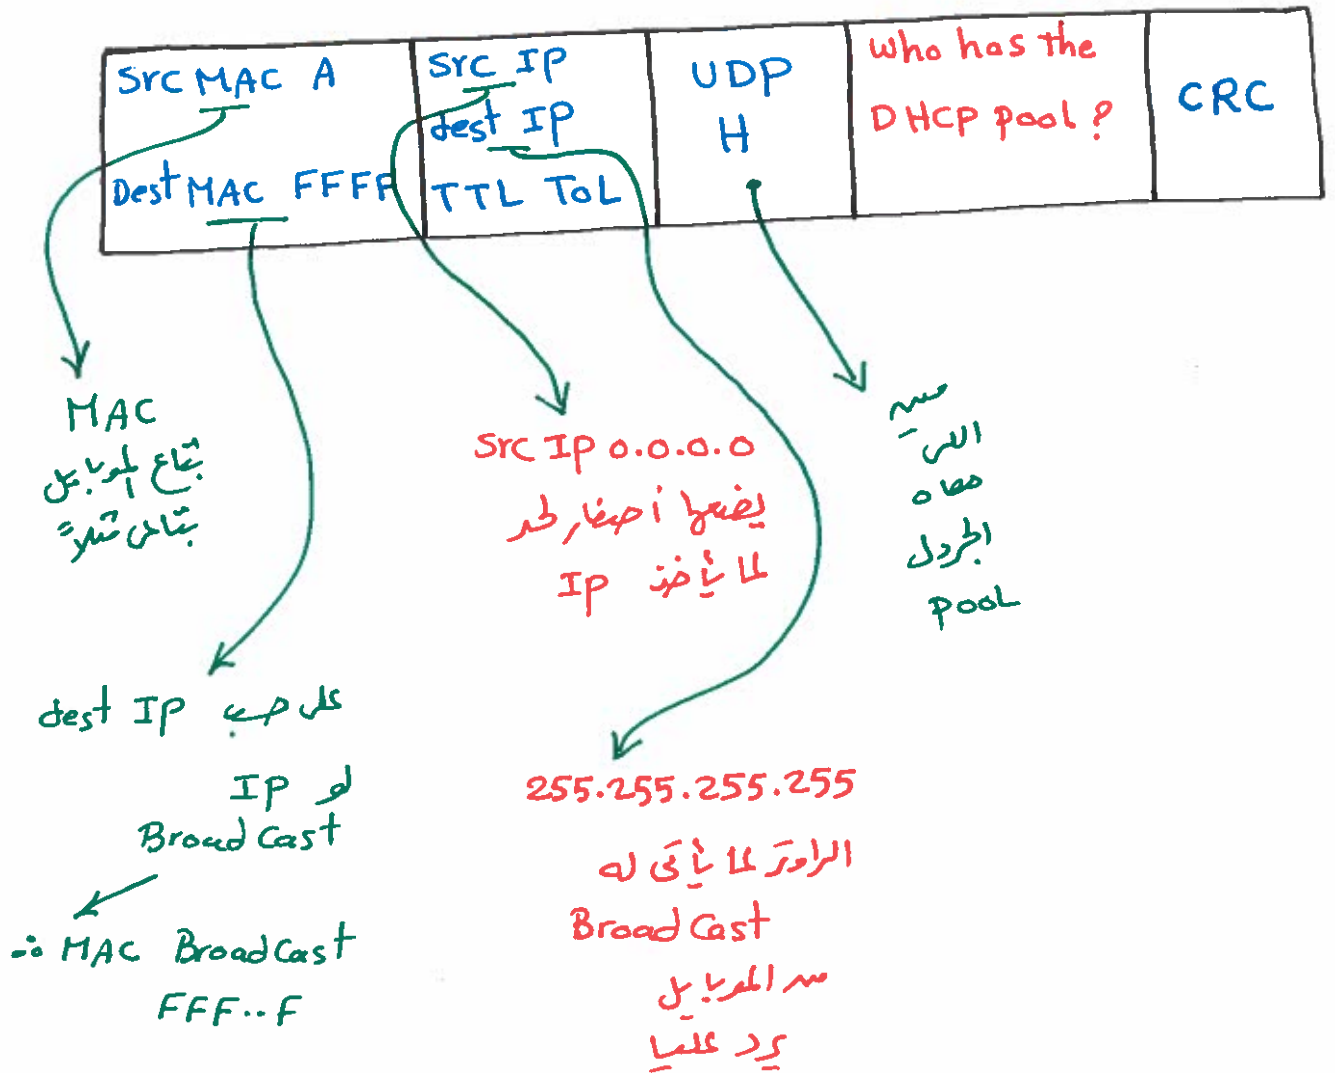 Src MAC A
Dest MAC FFFF
Src IP
dest IP
TTL ToL
UDP
H
Who has the
DHCP pool ?
CRC
MAC
بتاع الموبايل
بتاعى مثلاً
Src Ip 0.0.0.0
يضعها أصفار لحد
لما يأخذ Ip
مين
اللى
معاه
الجردل
pooL
على حسب dest Ip
لو Ip
BroadCast
∴ MAC BroadCast
FFF..F
255.255.255.255
الراوتر لما يأتى له
BroadCast
من الموبايل
يرد عليا